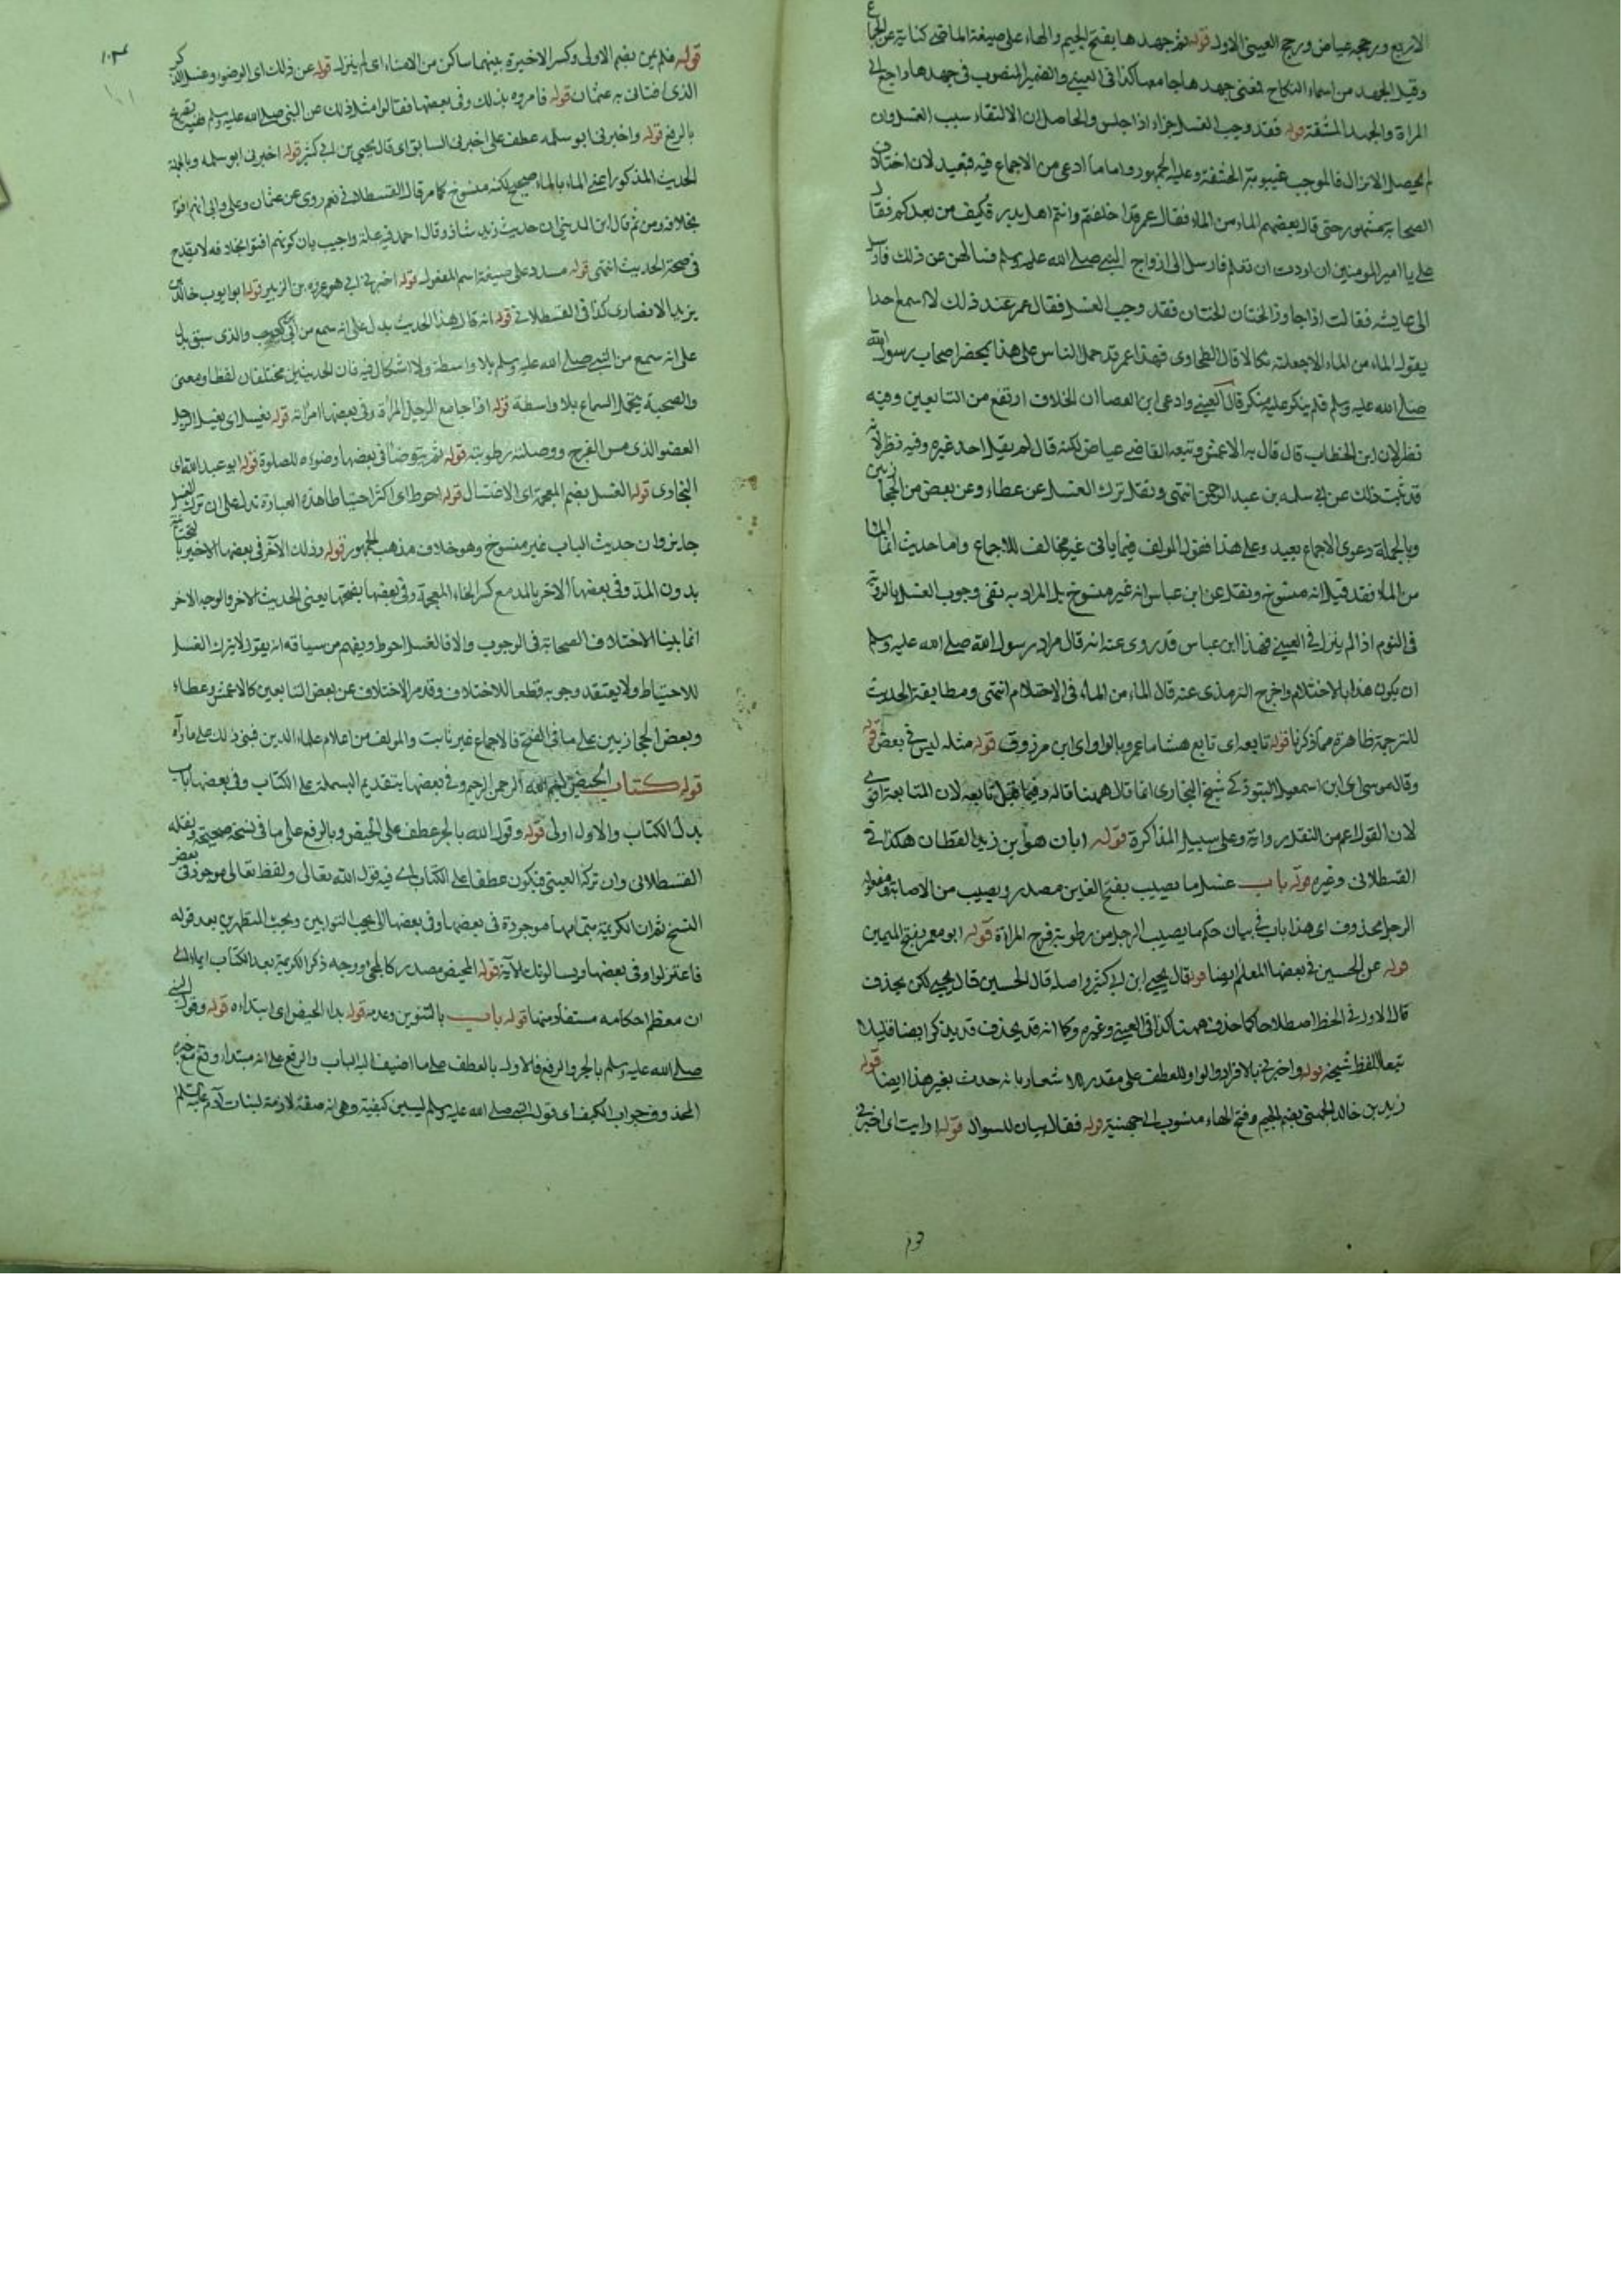 الاربع ورجحه عياض ورجح العيني الاول قوله ثم جهدها بفتح الجيم والهاء على صيغة الماضي كناية عن الجماع
وقيل الجهد من اسماء النكاح فمعنى جهدها جامعها كذا في العيني والضمير المنصوب في جهدها راجع الى
المراة والجهد المشقة قوله فقد وجب الغسل جزاء اذا جلس والحاصل ان الالتقاء سبب الغسل وان
لم يحصل الانزال فالموجب غيبوبة الحشفة وعليه الجمهور واما ما ادعى من الاجماع فيه فبعيد لان اختلاف
الصحابة مشهور حتى قال بعضهم الماء من الماء فقال عمر قد اختلفتم وانتم اهل بدر فكيف من بعدكم فقال
علي يا امير المومنين ان اردت ان تعلم فارسل الى ازواج النبي صلى الله عليه وسلم فسالهن عن ذلك فارسل
الى عايشه فقالت اذا جاوز الختان الختان فقد وجب الغسل فقال عمر عند ذلك لا اسمع احدا
يقول الماء من الماء الا جعلته نكالا قال الطحاوى فهذا عمر قد حمل الناس على هذا بحضر اصحاب رسول الله
صلى الله عليه وسلم فلم ينكر عليه منكر قال العيني وادعى ابن العصا ان الخلاف ارتفع من التابعين وفيه
نظر لان ابن الخطاب قال قال به الاعمش وتبعه القاضي عياض لكنه قال لم يقل احد غيره وفيه نظر لانه
قد ثبت ذلك عن ابي سلمه بن عبد الرحمن انتهى ونقل ترك الغسل عن عطاء وعن بعض من الحجازيين
وبالجملة دعوى الاجماع بعيد وعلى هذا فقول المولف فيما ياتى غير مخالف للاجماع واما حديث انما الماء
من الماء فقد قيل انه منسوخ ونقل عن ابن عباس انه غير منسوخ بل المراد به نفى وجوب الغسل بالروية
في النوم اذا لم ينزل في العيني فهذا ابن عباس قد روى عنه انه قال مراد رسول الله صلى الله عليه وسلم
ان يكون هذا بالاحتلام واخرج الترمذى عنه قال الماء من الماء في الاحتلام انتهى ومطابقة الحديث
للترجمة ظاهرة مما ذكرنا قوله تابعه اى تابع هشاما عمرو بالواو اى ابن مرزوق قوله مثله ليس في بعض قوله
وقال موسى اى ابن اسمعيل التبوذكي شيخ البخارى انما قال ههنا قاله وفيما قبل تابعه لان المتابعة اقوى
لان القول اعم من النقل رواية وعلى سبيل المذاكرة قوله ابان هو ابن زيد القطان هكذا في
القسطلانى وغيره قوله باب غسل ما يصيب بفتح الغين مصدر ويصيب من الاصابة ومفعوله
الرجل محذوف اى هذا باب في بيان حكم ما يصيب الرجل من رطوبة فرج المراة قوله ابو معمر بفتح الميمين
قوله عن الحسين في بعضها المعلم ايضا قوله قال يحيى ابن ابي كثير واصله قال الحسين قال يحيى لكن يحذف
قال الاول في الخط اصطلاحا كما حذف ههنا كذا في العيني وغيره وكما انه قد يحذف قد يذكر ايضا قليلا
تبعا للفظ شيخه قوله واخبرني بالافراد والواو للعطف على مقدر للاشعار بانه حدث بغير هذا ايضا قوله
زيد بن خالد الجهنى بضم الجيم وفتح الهاء منسوب الى جهينة قوله فقال بيان للسوال قوله ارايت اى اخبرني
قوله فلم يمن بضم الاولى وكسر الاخيرة بينهما ساكن من الامناء اى لم ينزل قوله عن ذلك اى الوضوء وغسل الذكر
الذى افتانى به عثمان قوله فامروه بذلك وفى بعضها فقالوا مثل ذلك عن النبى صلى الله عليه وسلم ففيه تصريح
بالرفع قوله واخبرنى ابو سلمه عطف على اخبرنى السابق اى قال يحيى بن ابي كثير قوله اخبرنى ابو سلمه وبالجملة
الحديث المذكور اعنى الماء بالماء صحيح لكنه منسوخ كما مر قال القسطلانى نعم روى عن عثمان وعلى وابى انهم افتوا
بخلافه ومن ثم قال ابن المدينى ان حديث زيد شاذ وقال احمد فيه علة واجيب بان كونهم افتوا بخلافه لا يقدح
فى صحة الحديث انتهى قوله مسدد على صيغة اسم المفعول قوله اخبرنى ابي هو عروه بن الزبير قوله ابو ايوب خالد بن
يزيد الانصارى كذا في القسطلاني قوله انه قال هذا الحديث يدل على انه سمع من ابى بن كعب والذى سبق يدل
على انه سمع من النبى صلى الله عليه وسلم بلا واسطة ولا اشكال فيه فان الحديثين مختلفان لفظا ومعنى
والصحبة يحتمل السماع بلا واسطة قوله اذا جامع الرجل المراة وفى بعضها امراته قوله يغسل اى يغسل الرجل
العضو الذى مس الفرج ووصلته رطوبته قوله ثم يتوضا فى بعضها وضوءه للصلوة قوله ابو عبد الله اى
البخارى قوله الغسل بضم المعجمة اى الاغتسال قوله احوط اى اكثر احتياطا هذه العبارة تدل على ان ترك الغسل
جايز وان حديث الباب غير منسوخ وهو خلاف مذهب الجمهور قوله وذلك الآخر فى بعضها الاخير بالتحتانية
بدون المد وفى بعضها الاخر بالمد مع كسر الخاء المعجمة وفى بعضها بفتحها يعنى الحديث الاخر والوجه الاخر
انما بينا لاختلاف الصحابة فى الوجوب والا فالغسل احوط ويفهم من سياقه انه يقول لا يترك الغسل
للاحتياط ولا يعتقد وجوبه قطعا للاختلاف وقد مر الاختلاف عن بعض التابعين كالاعمش وعطاء
وبعض الحجازيين على ما فى الفتح فالاجماع غير ثابت والمولف من اعلام علماء الدين فبنى ذلك على ما رآه
قوله كتاب الحيض بسم الله الرحمن الرحيم وفى بعضها بتقديم البسملة على الكتاب وفى بعضها باب
بدل الكتاب والاول اولى قوله وقول الله بالجر عطف على الحيض وبالرفع على ما فى نسخة صحيحة ونقله
القسطلانى وان تركه العينى فيكون عطفا على الكتاب اى فيه قول الله تعالى ولفظ تعالى موجود فى بعض
النسخ ثم ان الكريمة بتمامها موجودة فى بعضها وفى بعضها الى يحب التوابين ويحب المتطهرين بعد قوله
فاعتزلوا وفى بعضها ويسالونك الآية قوله المحيض مصدر كالمجئ ووجه ذكر الكريمة بعد الكتاب ايماء الى
ان معظم احكامه مستفاد منها قوله باب بالتنوين وعدمه قوله بدء الحيض اى ابتداءه قوله وقول النبى
صلى الله عليه وسلم بالجر والرفع فالاول بالعطف على ما اضيف اليه الباب والرفع على انه مبتدا وقع مع خبره
المحذوف جواب الكيف اى قول النبى صلى الله عليه وسلم ليبين كيفيته وهى انه صفة لازمة لبنات آدم عليه السلام